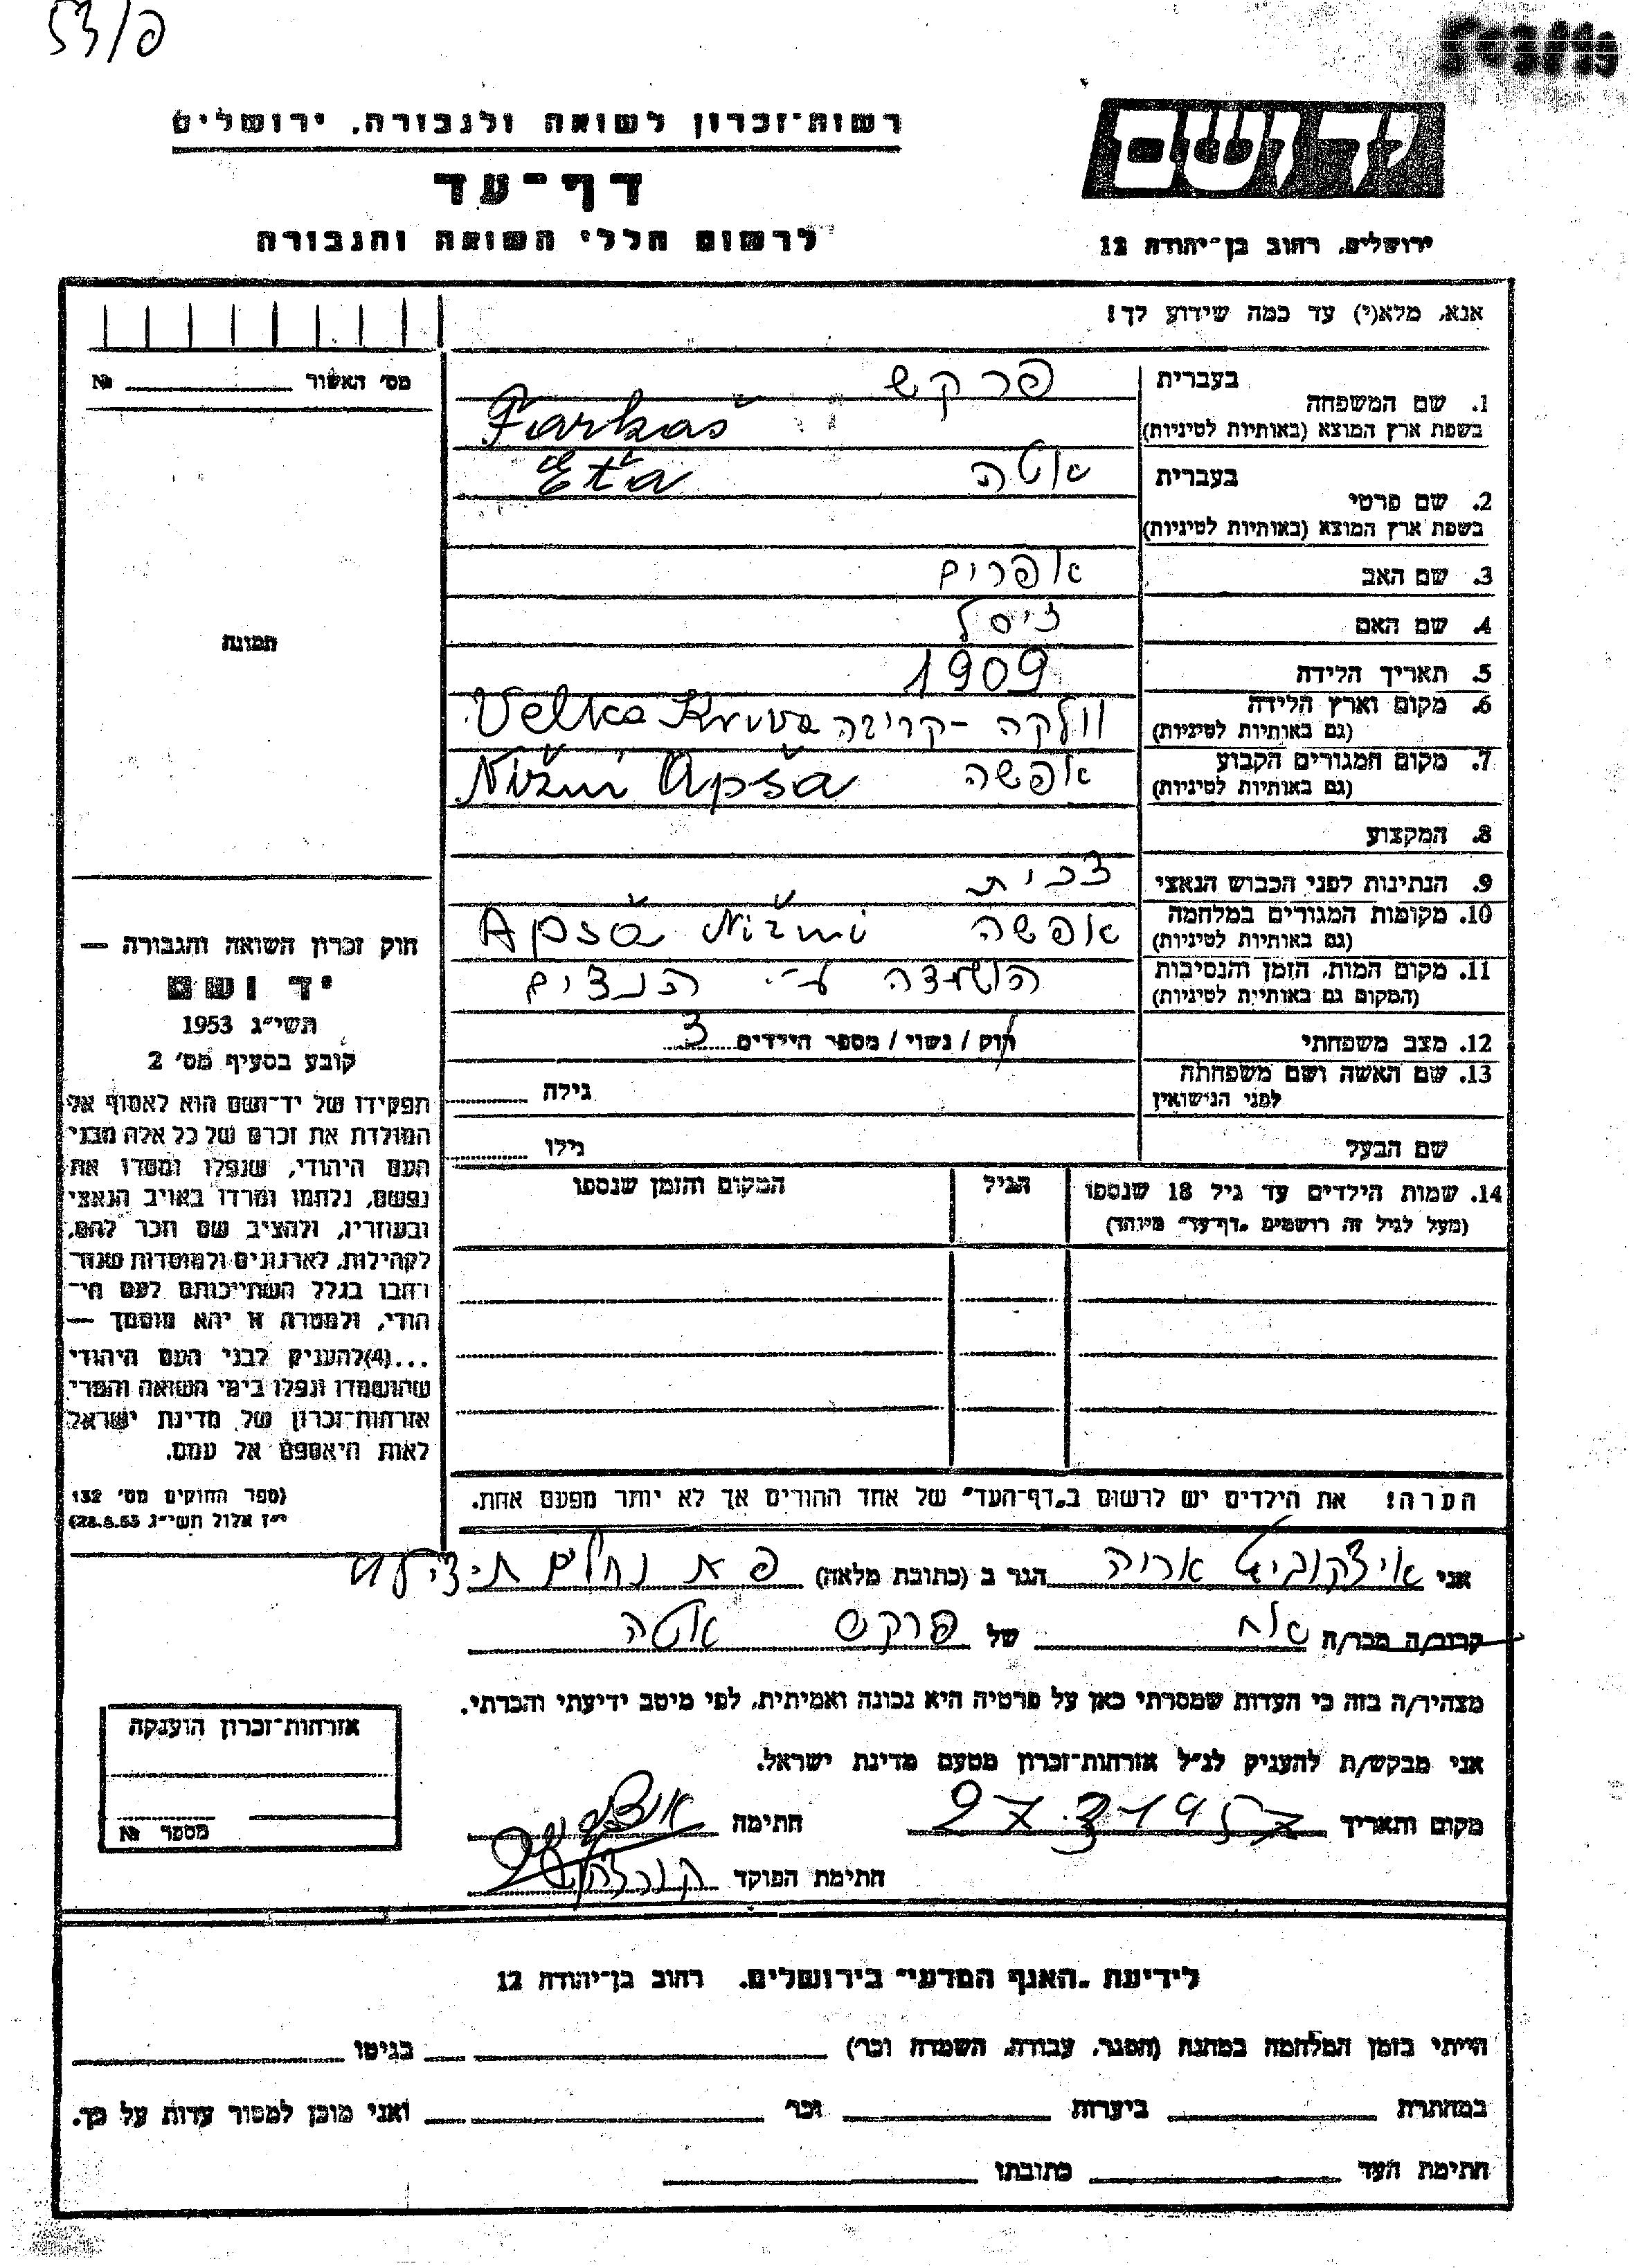 פ/53
רשות־זכרון לשואה ולגבורה, ירושלים
יד ושם
דף־עד
לרשום חללי השואה והגבורה
ירושלים, רחוב בן־יהודה 12
אנא, מלא(י) עד כמה שידוע לך!
מס' האשור № ________
1. שם המשפחה
בעברית פרקש
בשפת ארץ המוצא (באותיות לטיניות) Farkaš
2. שם פרטי
בעברית אטה Eta
בשפת ארץ המוצא (באותיות לטיניות)
3. שם האב אפרים
4. שם האם זיסל
5. תאריך הלידה 1909
6. מקום וארץ הלידה וולקה - קריבה Velka Kriva
(גם באותיות לטיניות)
7. מקום המגורים הקבוע אפשה Nižni Apša
(גם באותיות לטיניות)
8. המקצוע
9. הנתינות לפני הכבוש הנאצי צכית
10. מקומות המגורים במלחמה אפשה Apša Nižni
(גם באותיות לטיניות)
11. מקום המות, הזמן והנסיבות הושמדה ע"י הנצים
(המקום גם באותיות לטיניות)
12. מצב משפחתי רווק / נשוי / מספר הילדים 3
13. שם האשה ושם משפחתה
לפני הנישואין גילה
שם הבעל גילו
14. שמות הילדים עד גיל 18 שנספו הגיל המקום והזמן שנספו
(מעל לגיל זה רושמים „דף־עד" מיוחד)
הערה! את הילדים יש לרשום ב„דף־העד" של אחד ההורים אך לא יותר מפעם אחת.
תמונה
חוק זכרון השואה והגבורה —
יד ושם
תשי"ג 1953
קובע בסעיף מס' 2
תפקידו של יד־ושם הוא לאסוף אל
המולדת את זכרם של כל אלה מבני
העם היהודי, שנפלו ומסרו את
נפשם, נלחמו ומרדו באויב הנאצי
ובעוזריו, ולהציב שם וזכר להם,
לקהילות, לארגונים ולמוסדות שנח־
רבו בגלל השתייכותם לעם הי־
הודי, ולמטרה זו יהא מוסמך —
...(4)להעניק לבני העם היהודי
שהושמדו ונפלו בימי השואה והמרי
אזרחות־זכרון של מדינת ישראל
לאות היאספם אל עמם.
(ספר החוקים מס' 132
י"ז אלול תשי"ג 28.8.53)
אני איצקוביץ אריה הגר ב (כתובת מלאה) פ"ת נחלים
קרוב/ה מכר/ה אח של פרקש אטה
מצהיר/ה בזה כי העדות שמסרתי כאן על פרטיה היא נכונה ואמיתית, לפי מיטב ידיעתי והכרתי.
אני מבקש/ת להעניק לנ"ל אזרחות־זכרון מטעם מדינת ישראל.
מקום ותאריך 27.3.1957 חתימה
חתימת הפוקד
אזרחות־זכרון הוענקה
מספר №
לידיעת „האגף המדעי" בירושלים. רחוב בן־יהודה 12
הייתי בזמן המלחמה במחנה (הסגר, עבודה, השמדה וכו') ________ בגיטו ________
במחתרת ________ ביערות ________ וכו' ________ ואני מוכן למסור עדות על כך.
חתימת העד ________ כתובתו ________